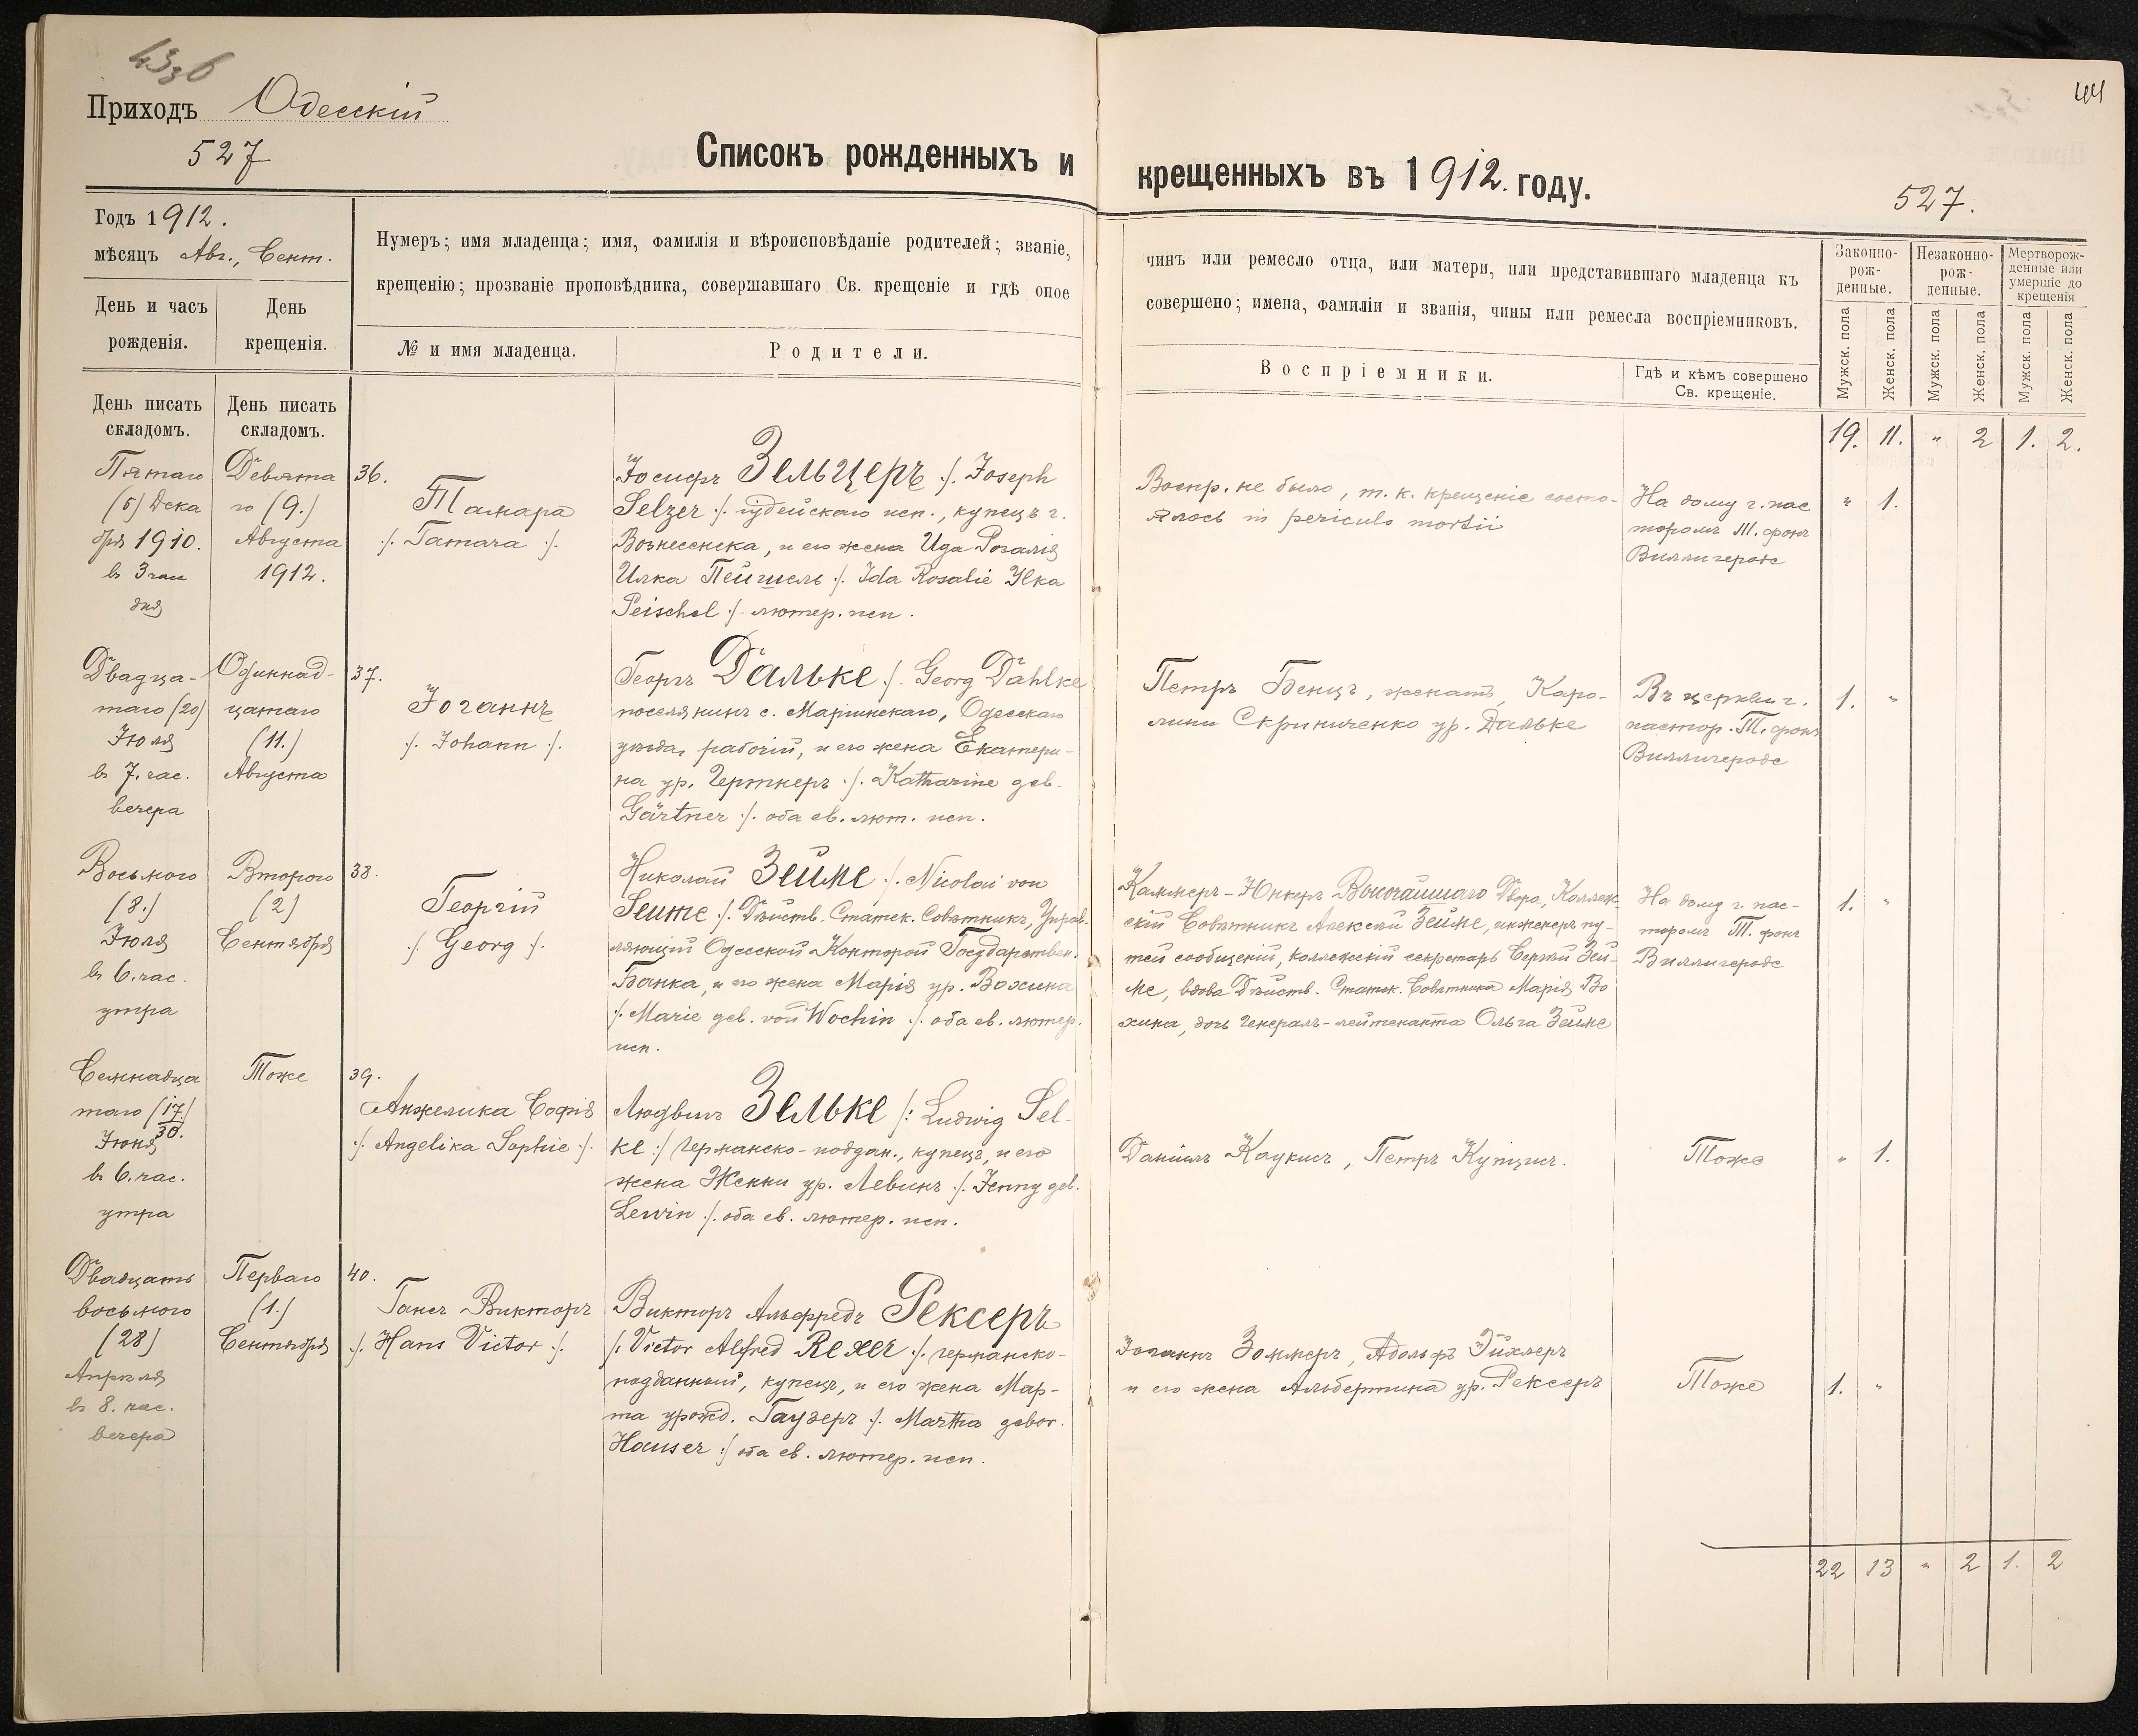 Приходъ Одесскій
527
Списокъ рожденныхъ и крещенныхъ въ 1912. году.
527.
44
Годъ 1912.
мѣсяцъ Авг., Сент.
День и часъ
рожденія.
День
крещенія.
Нумеръ; имя младенца; имя, фамилія и вѣроисповѣданіе родителей; званіе,
крещенію; прозваніе проповѣдника, совершавшаго Св. крещеніе и гдѣ оное
№ и имя младенца.
Родители.
чинъ или ремесло отца, или матери, или представившаго младенца къ
совершено; имена, фамиліи и званія, чины или ремесла воспріемниковъ.
Воспріемники.
Гдѣ и кѣмъ совершено
Св. крещеніе.
Законно-
рож-
денные.
Незаконно-
рож-
денные.
Мертворож-
денные или
умершіе до
крещенія
Мужск. пола
Женск. пола
Мужск. пола
Женск. пола
Мужск. пола
Женск. пола
День писать
складомъ.
День писать
складомъ.
19. 11. " 2 1. 2.
Пятаго
(5) Дека
бря 1910.
въ 3 час
дня
Девята
го (9.)
Августа
1912.
36.
Тамара
/. Tamara ./.
Іосифъ Зельцеръ ./. Joseph
Selzer ./. іудейскаго исп., купецъ г.
Вознесенска, и его жена Ида Розалія
Илка Пейшель ./. Ida Rosalie Ilka
Peischel ./. лютер. исп.
Воспр. не было, т. к. крещеніе состо-
ялось in periculo mortii
На дому г. пас
торомъ Т. фонъ
Виллигероде
" 1.
Двадца-
таго (20)
Іюля
въ 7. час.
вечера
Одиннад-
цатаго
(11.)
Августа
37.
Іоганнъ
/. Johann ./.
Георгъ Дальке ./. Georg Dahlke
поселянинъ с. Маріинскаго, Одесскаго
уѣзда, рабочій, и его жена Екатери-
на ур. Гертнеръ ./. Katharine geb.
Gärtner ./. оба ев. лют. исп.
Петръ Бенцъ, женатъ, Каро-
лина Скриниченко ур. Дальке
Въ церкви г.
пастор. Т. фонъ
Виллигероде
1. "
Восьмого
(8.)
Іюля
въ 6. час.
утра
Второго
(2)
Сентября
38.
Георгій
/. Georg ./.
Николай Зейме ./. Nicolai von
Seume ./. Дѣйств. Статск. Совѣтникъ, Управ-
ляющій Одесской Конторой Государствен.
Банка, и его жена Марія ур. Вохина
/. Marie geb. von Wochin ./. оба ев. лютер.
исп.
Каммеръ-Юнкеръ Высочайшаго Двора, Коллеж-
скій Совѣтникъ Алексѣй Зейме, инженеръ пу-
тей сообщеній, коллежскій секретарь Сергѣй Зей-
ме, вдова Дѣйств. Статск. Совѣтника Марія Во
хина, дочь Генералъ-лейтенанта Ольга Зейме
На дому г. пас-
торомъ Т. фонъ
Виллигероде
1. "
Семнадца
таго (17/30.)
Іюня
въ 6. час.
утра
Тоже
39.
Анжелика Софія
/. Angelika Sophie ./.
Людвигъ Зельке /: Ludwig Sel-
ke :/ Германско-поддан., купецъ, и его
жена Женни ур. Левинъ ./. Jenny geb.
Lewin ./. оба ев. лютер. исп.
Даніилъ Каукисъ, Петръ
Тоже
" 1.
Двадцать
восьмого
(28)
Апрѣля
въ 8. час.
вечера
Перваго
(1.)
Сентября
40.
Гансъ Викторъ
/. Hans Victor ./.
Викторъ Альфредъ Рексеръ
/. Victor Alfred Rexer ./. германско-
подданный, купецъ, и его жена Мар-
та урожд. Гаузеръ ./. Martha gebor.
Hauser :/ оба ев. лютер. исп.
Іоганнъ Зоммеръ, Адольфъ Эйхлеръ
и его жена Альбертина ур. Рексеръ
Тоже
1. "
22 13 " 2 1. 2